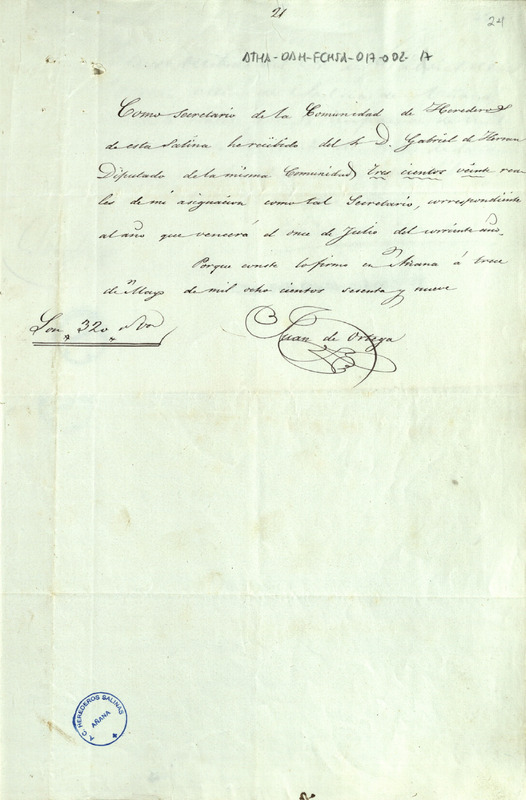 21
24
ATHA-DAH-FCHSA-017-002-17
Como Secretario de la Comunidad de Herederos
de esta Salina he recibido del Sr D. Gabriel de Herran
Diputado de la misma Comunidad, tres cientos veinte rea-
les de mi asignacion como tal Secretario, correspondiente
al año que vencerá el once de Julio del corriente año.
Porque conste lo firmo en Añana á trece
de Mayo de mil ocho cientos sesenta y nueve
Son 320 rs vn
Juan de Ortega
T. C. HEREDEROS SALINAS
AÑANA